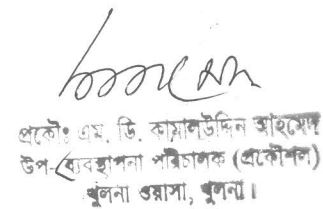 প্রকৌঃ এম. ডি. কামালউদ্দিন আহমেদ
উপ-ব্যবস্থাপনা পরিচালক (প্রকৌশল)
খুলনা ওয়াসা, খুলনা।